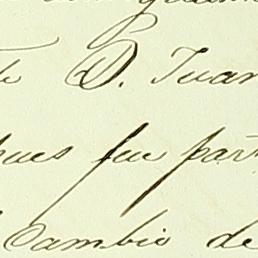 te D. Juan
pues fue part
Cambio de